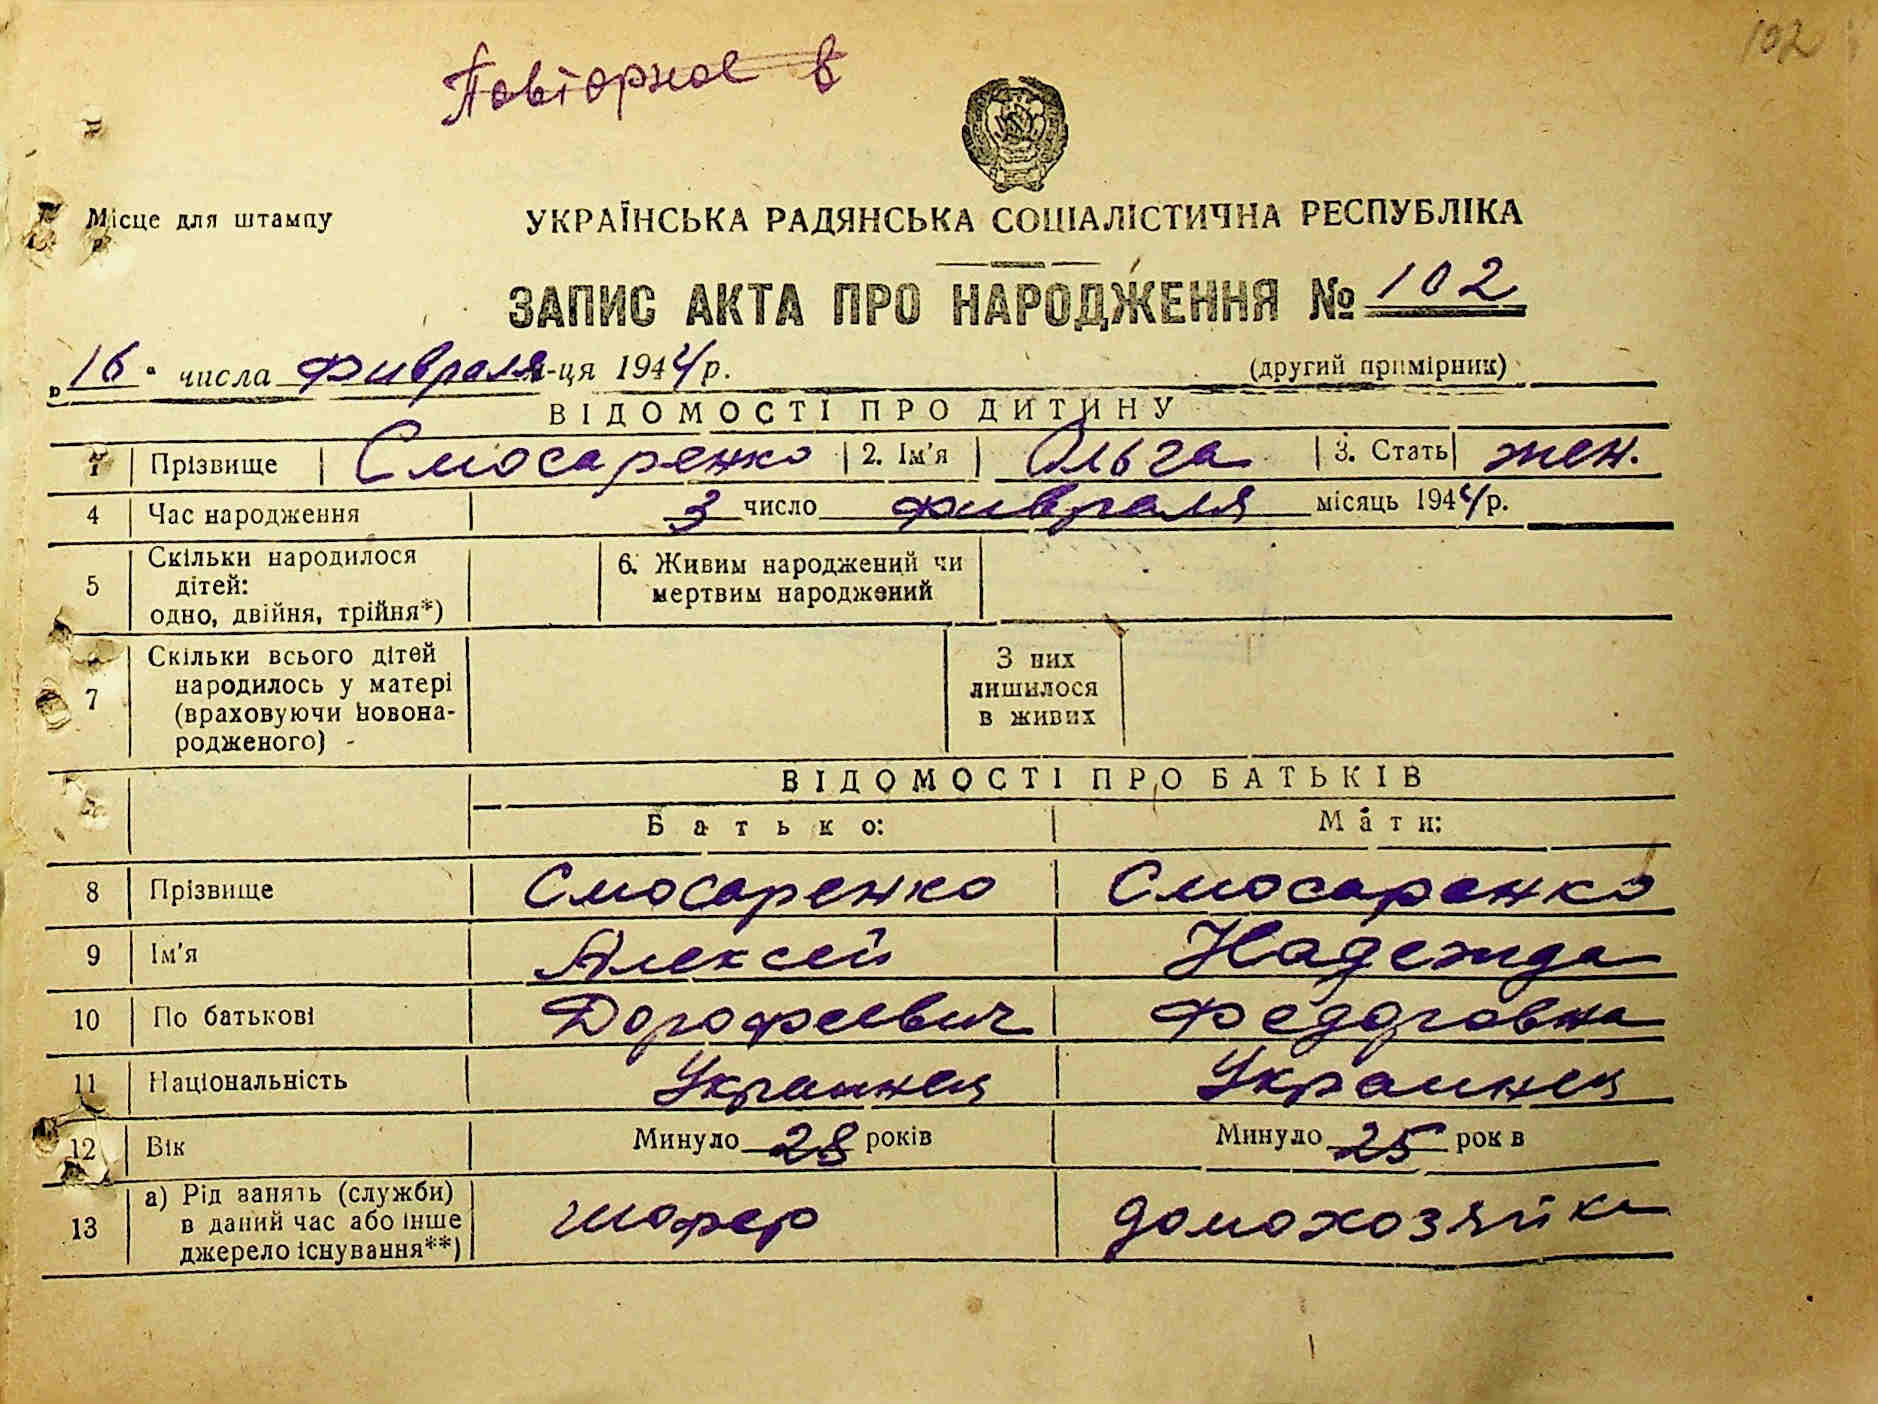 102
Повторное в
Місце для штампу
УКРАЇНСЬКА РАДЯНСЬКА СОЦІАЛІСТИЧНА РЕСПУБЛІКА
ЗАПИС АКТА ПРО НАРОДЖЕННЯ № 102
„16" числа фивраля м-ця 1944 р.
(другий примірник)
ВІДОМОСТІ ПРО ДИТИНУ
1 Прізвище Смосаренко 2. Ім'я Ольга 3. Стать жен.
4 Час народження 3 число фивраля місяць 1944 р.
5 Скільки народилося дітей: одно, двійня, трійня*) 6. Живим народжений чи мертвим народжений
7 Скільки всього дітей народилось у матері (враховуючи новонародженого) З них лишилося в живих
ВІДОМОСТІ ПРО БАТЬКІВ
Батько: Мати:
8 Прізвище Смосаренко Смосаренко
9 Ім'я Алексей Надежда
10 По батькові Дорофеевич Федоровна
11 Національність Украинец Украинец
12 Вік Минуло 28 років Минуло 25 рок в
13 а) Рід занять (служби) в даний час або інше джерело існування**) шофер домохозяйка